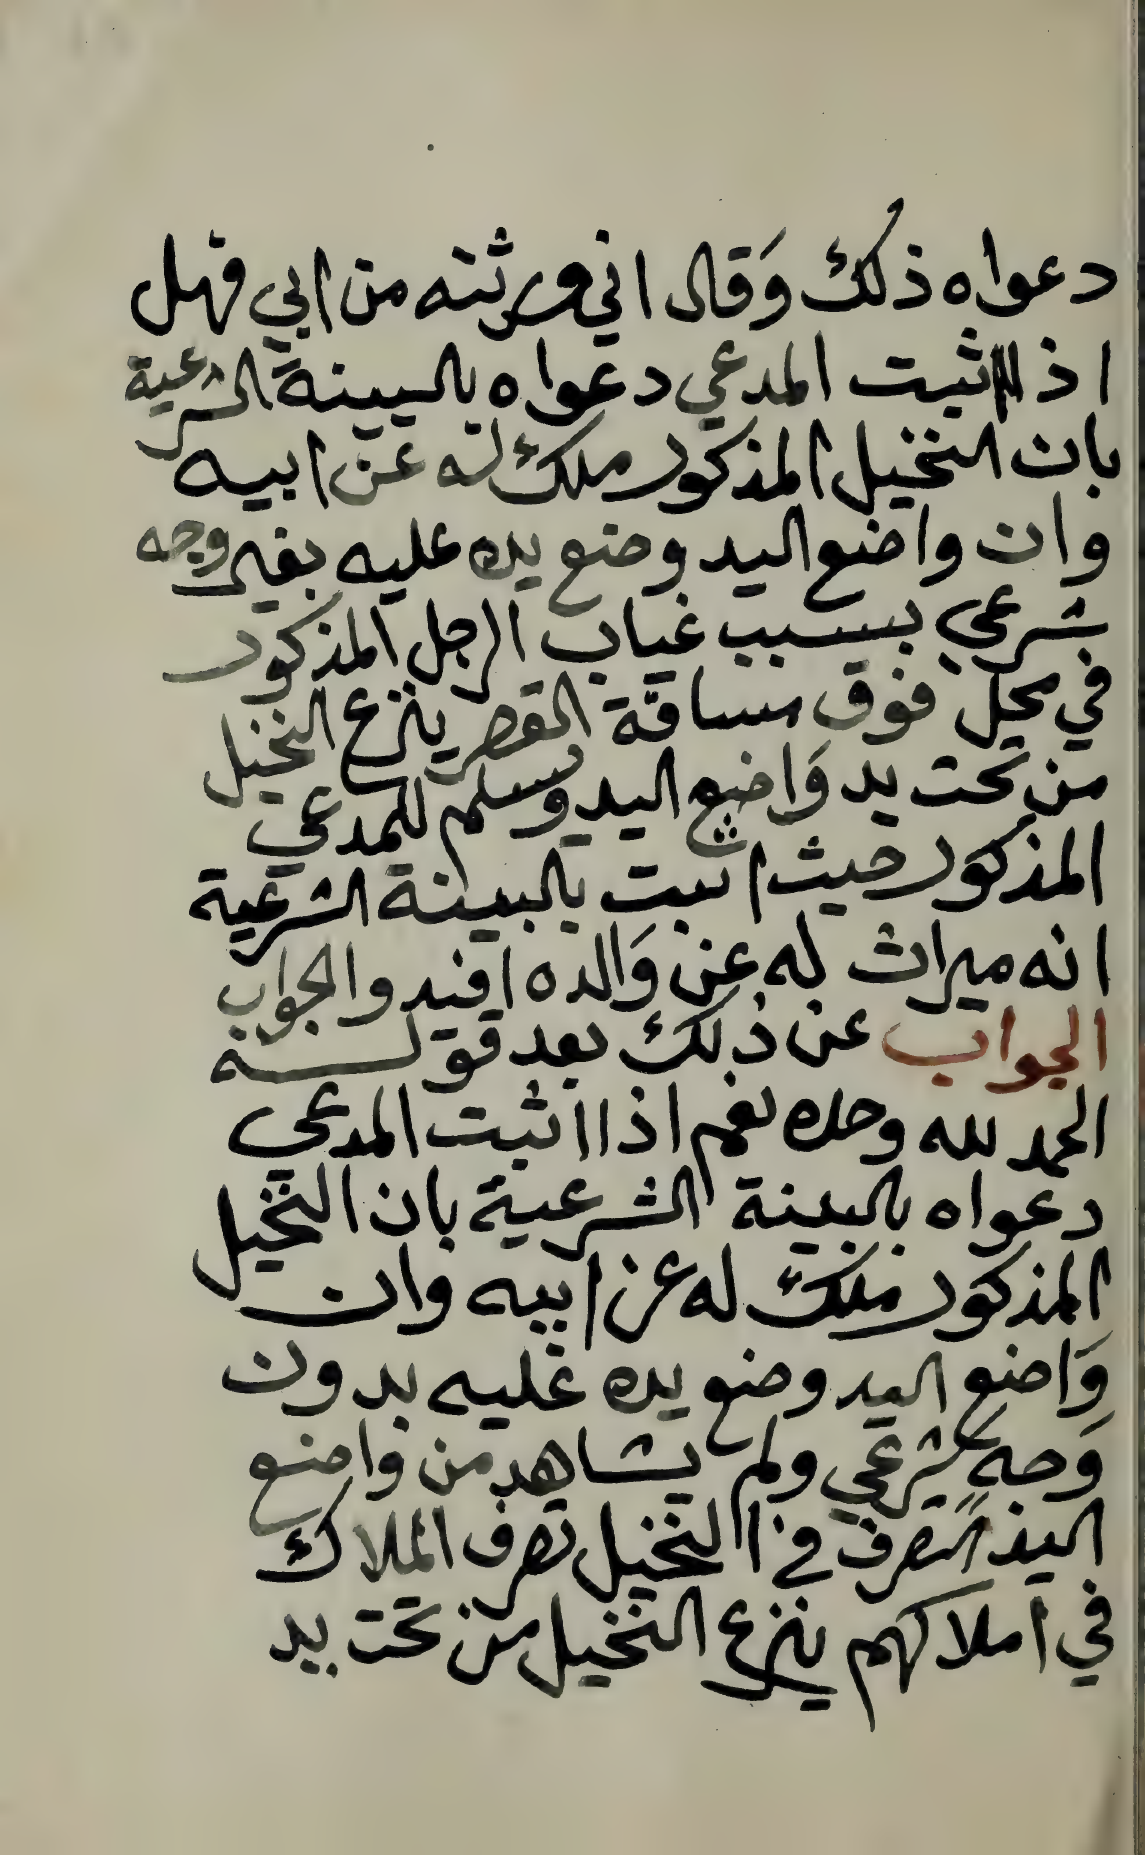 دعواه ذلك وقال اني ورثته من ابي فهل
اذا اثبت المدعي دعواه بالبينة الشرعية
بان النخيل المذكور ملك له عن ابيه
وان واضع اليد وضع يده عليه بغير وجه
شرعي بسبب غياب الرجل المذكور
في محل فوق مسافة القصر ينزع النخيل
من تحت يد واضع اليد ويسلم للمدعي
المذكور حيث اثبت بالبينة الشرعية
انه ميراث له عن والده افيدوا الجواب
الجواب عن ذلك بعد قولنا
الحمد لله وحده نعم اذا اثبت المدعي
دعواه بالبينة الشرعية بان النخيل
المذكور ملك له عن ابيه وان
واضع اليد وضع يده عليه بدون
وجه شرعي ولم يشاهد من واضع
اليد التصرف في النخيل تصرف الملاك
في املاكهم ينزع النخيل من تحت يد